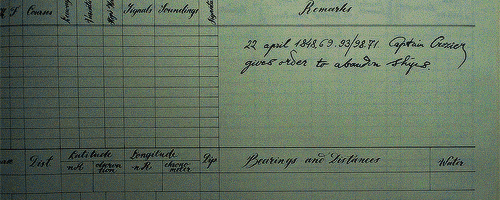 H F Courses Signals Soundings Signals Remarks
22 april 1848, 69.93/98.71. Captain Crozier
gives order to abandon ships.
Dist Latitude Longitude Dip Bearings and Distances Water
observation chronometer